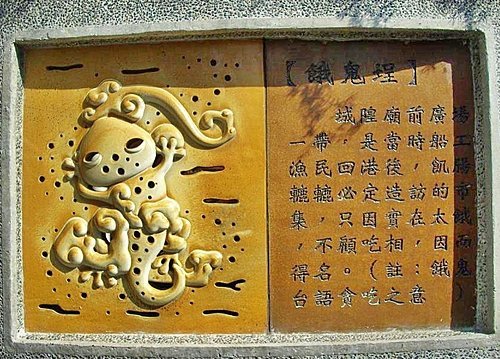 【餓鬼埕】
場工腸市餓兩鬼)
廣船飢的太因餓
前時,訪在,:意
廟當後造實相註之
隍是港定因吃(吃
城,回必只顧。貪
帶民轆,不名語
一漁轆集,得台